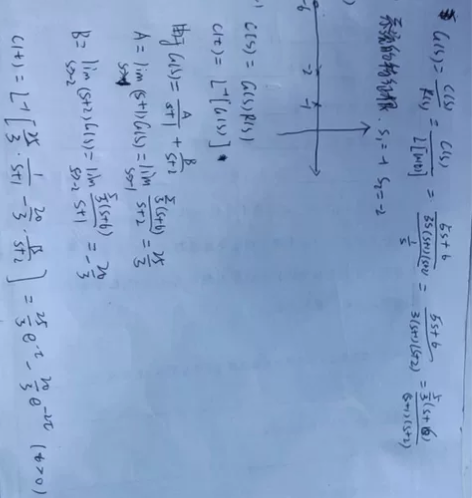 G(s) = C(s)/R(s) = C(s)/L[u(t)] = (5s+6)/(3s(s+1)(s+2))/(1/s) = (5s+6)/(3(s+1)(s+2)) = 5/3(s+6)/((s+1)(s+2))
s₁=-1 s₂=-2
-6 -2 -1
C(s) = G(s)R(s)
C(t) = L⁻¹[G(s)]
由于 G(s) = A/(s+1) + B/(s+2)
A = lim (s+1)G(s) = lim 5/3(s+6)/(s+2) = 25/3
B = lim (s+2)G(s) = lim 5/3(s+6)/(s+1) = -20/3
C(t) = L⁻¹[25/3 · 1/(s+1) - 20/3 · /(s+2)] = 25/3 e - 20/3 e (t>0)